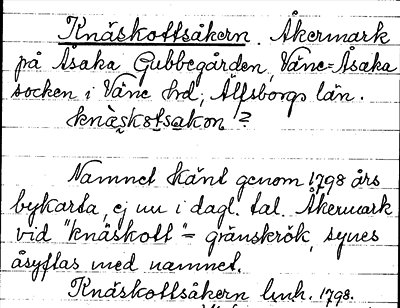 Knäskottsåkern. Åkermark
på Åsaka Gubbegården, Väne-Åsaka
socken i Väne hd, Älfsborgs län.
knäskåtsakon ?
Namnet känt genom 1798 års
bykarta, ej nu i dagl. tal. Åkermark
vid "knäskott" = gränskrök, synes
åsyftas med namnet.
Knäskottsåkern lmh. 1798.